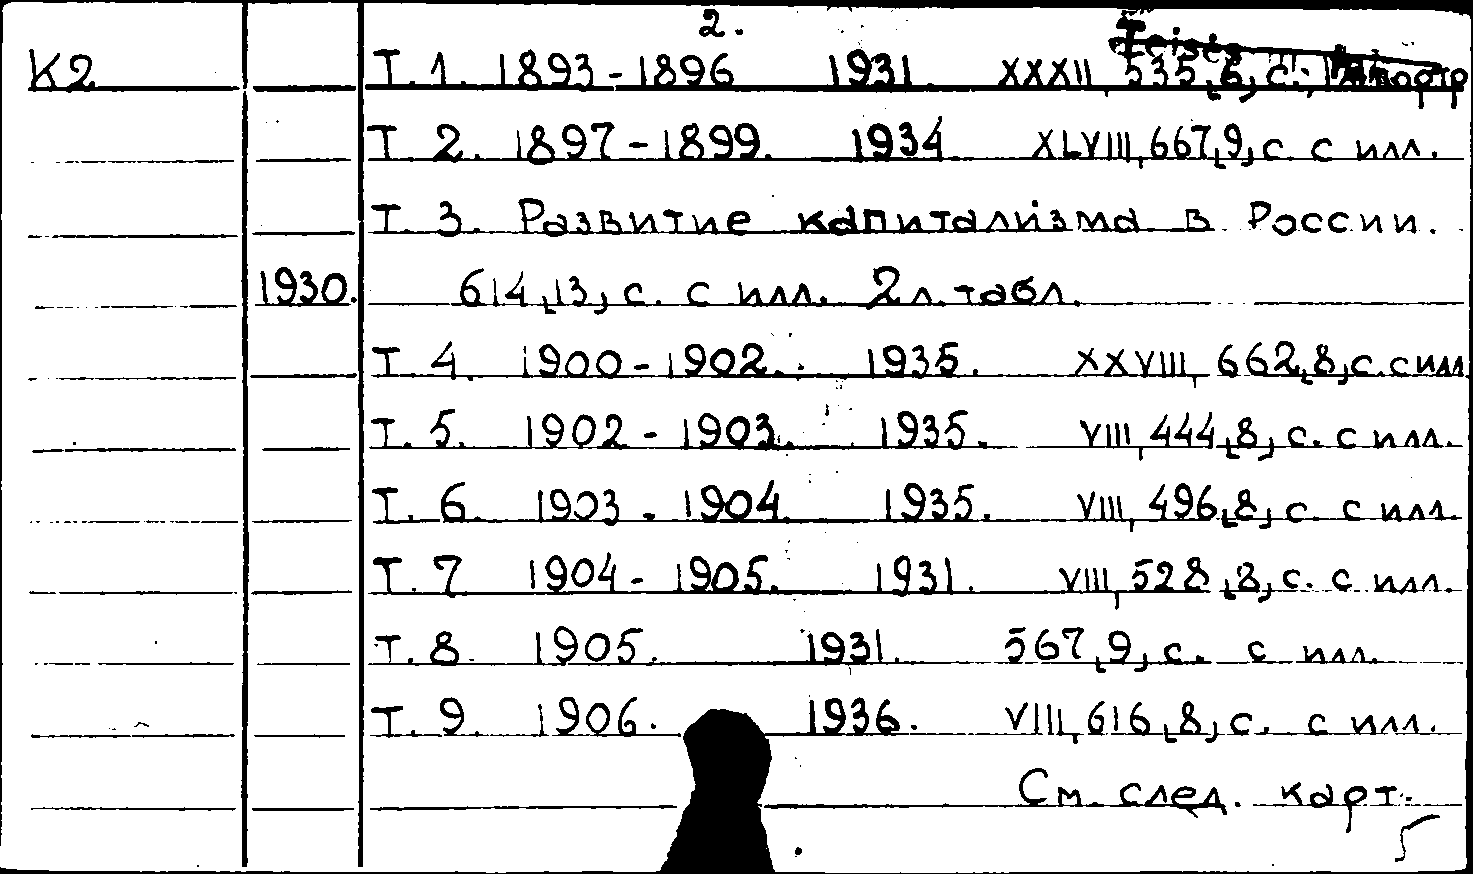 2.
К2 Т. 1. 1893-1896 1931. XXXII, 535,[6] с.; 1 портр
Т. 2. 1897-1899. 1934. XLVIII, 667,[9] с. с илл.
Т. 3. Развитие капитализма в России.
1930. 614,[13] с. с илл. 2 л. табл.
Т. 4. 1900-1902. 1935. XXVIII, 662,[8] с. с илл
Т. 5. 1902-1903. 1935. VIII, 444,[8] с. с илл.
Т. 6. 1903-1904. 1935. VIII, 496,[8] с. с илл.
Т. 7 1904-1905. 1931. VIII, 528,[8] с. с илл.
Т. 8. 1905. 1931. 567,[9] с. с илл.
Т. 9. 1906. 1936. VIII, 616,[8] с. с илл.
См. след. карт.
5